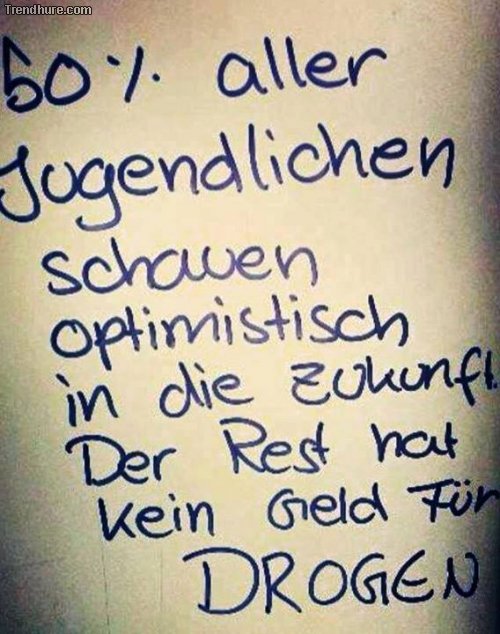 Trendhure.com
50% aller
Jugendlichen
schauen
optimistisch
in die Zukunft
Der Rest hat
kein Geld Für
DROGEN